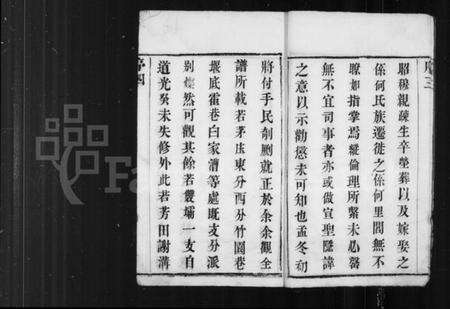 昭穆親疎生卒塋葬以及嫁娶之
係何民族遷徙之係何里閭無不
瞭如指掌焉縱倫理所繫未必畧
無不宜司事者亦或倣宣聖隱諱
之意以示勸懲未可知也孟冬初
將付手民剞劂就正於余余觀全
譜所載若茅庄東分西分竹園巷
堰底雷巷白家漕等處旣支分派
别燦然可觀其餘若叢壩一支自
道光癸未失修外此若芳田謝溝
序四